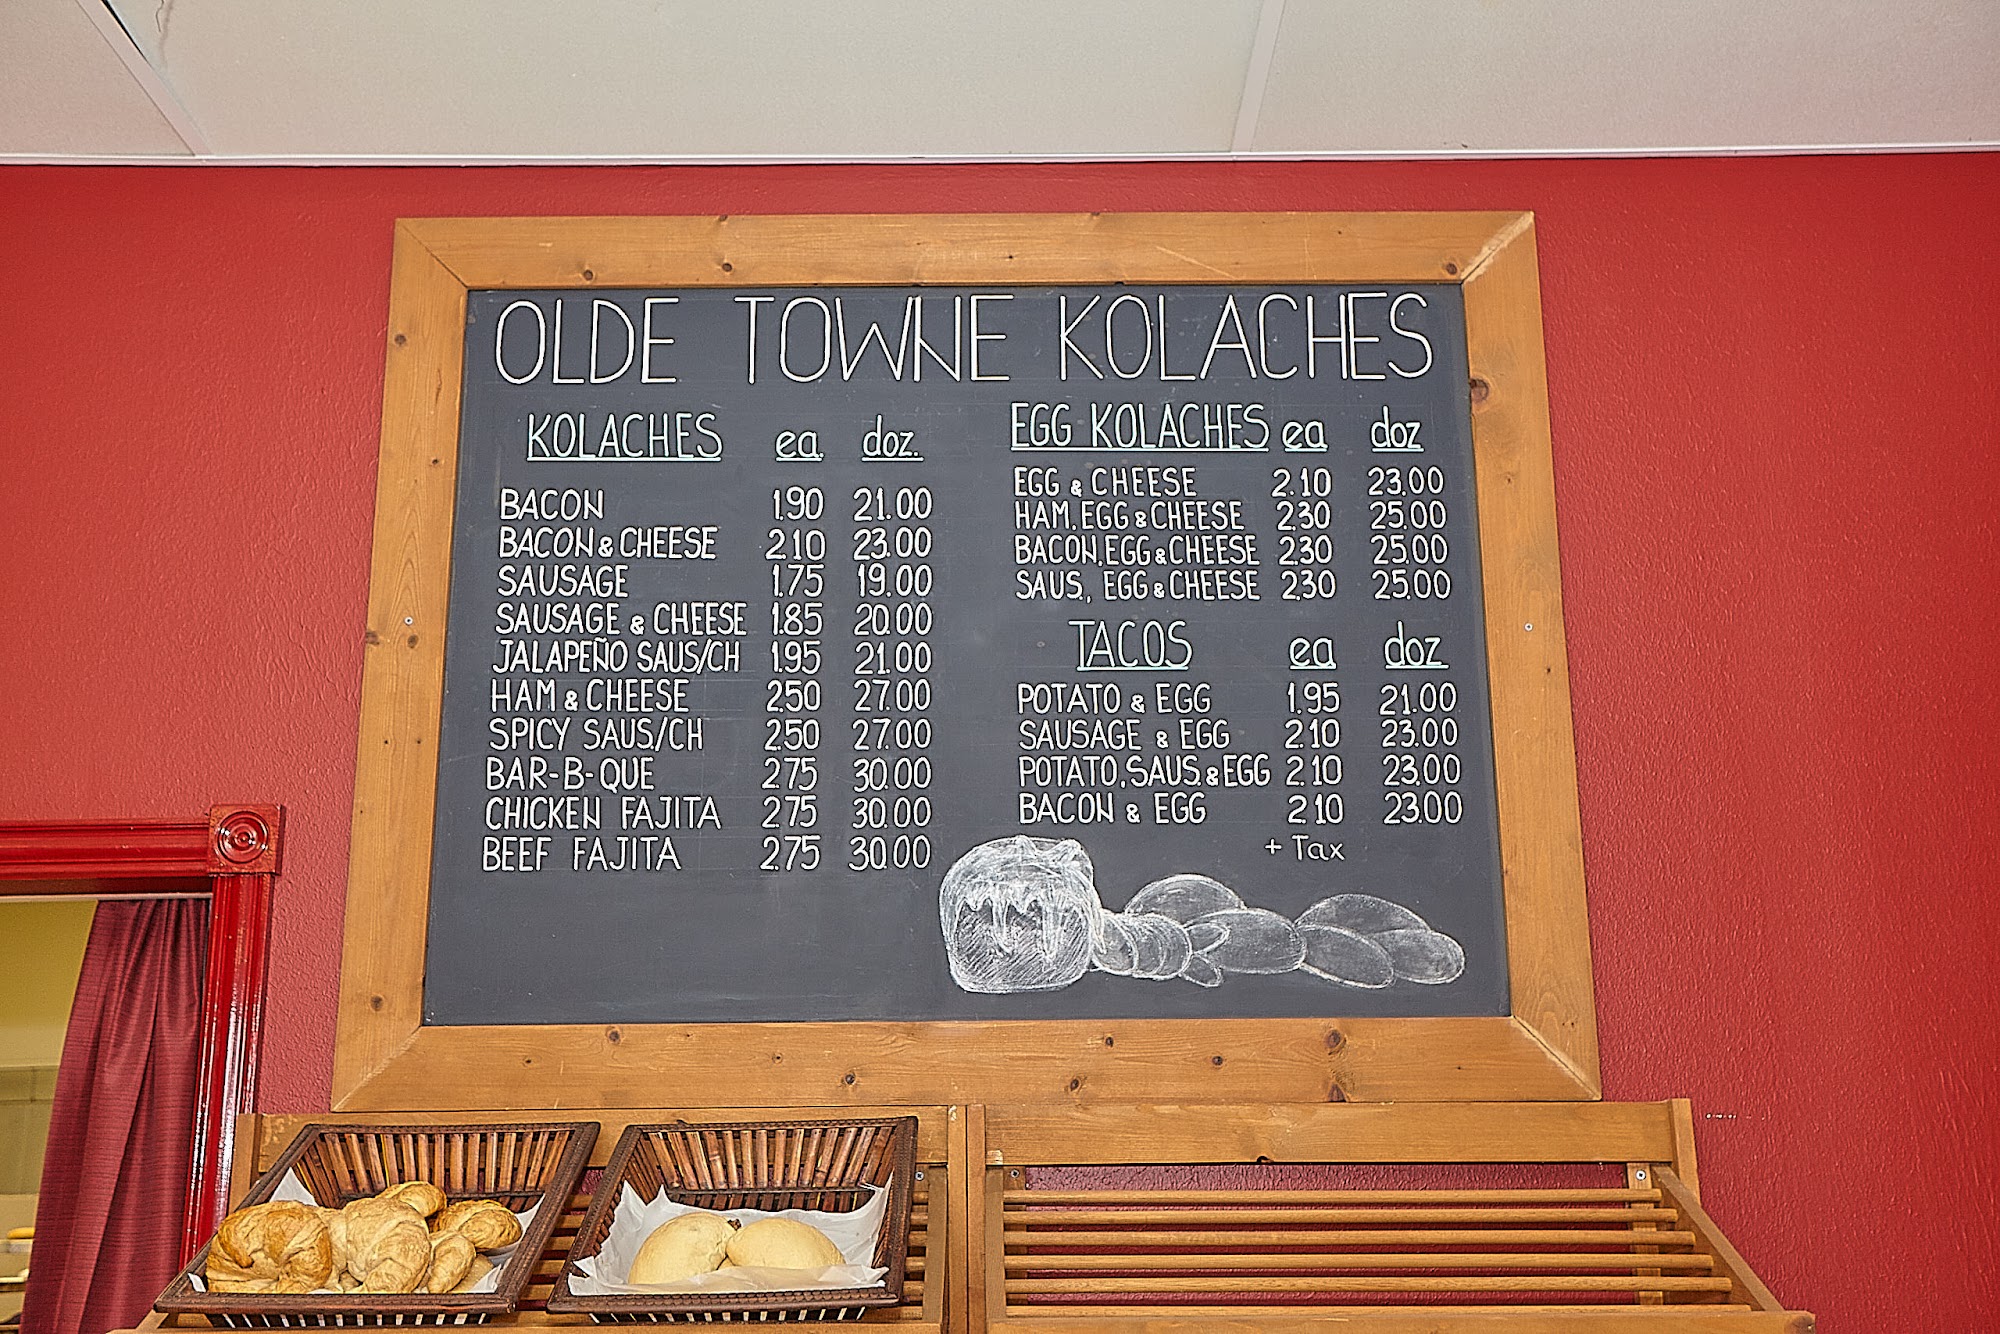 OLDE TOWNE KOLACHES
KOLACHES ea. doz.
BACON 1.90 21.00
BACON & CHEESE 2.10 23.00
SAUSAGE 1.75 19.00
SAUSAGE & CHEESE 1.85 20.00
JALAPEÑO SAUS/CH 1.95 21.00
HAM & CHEESE 2.50 27.00
SPICY SAUS./CH 2.50 27.00
BAR-B-QUE 2.75 30.00
CHICKEN FAJITA 2.75 30.00
BEEF FAJITA 2.75 30.00
EGG KOLACHES ea doz
EGG & CHEESE 2.10 23.00
HAM, EGG & CHEESE 2.30 25.00
BACON, EGG & CHEESE 2.30 25.00
SAUS., EGG & CHEESE 2.30 25.00
TACOS ea doz
POTATO & EGG 1.95 21.00
SAUSAGE & EGG 2.10 23.00
POTATO, SAUS. & EGG 2.10 23.00
BACON & EGG 2.10 23.00
+ Tax